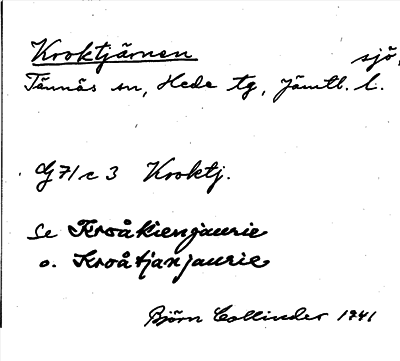 Kroktjärnen sjö,
Tännäs sn, Hede tg, Jämtl. l.
G 71 c 3 Kroktj.
Se Kroåkienjaurie
o. Kroåtjanjaurie
Björn Collinder 1941